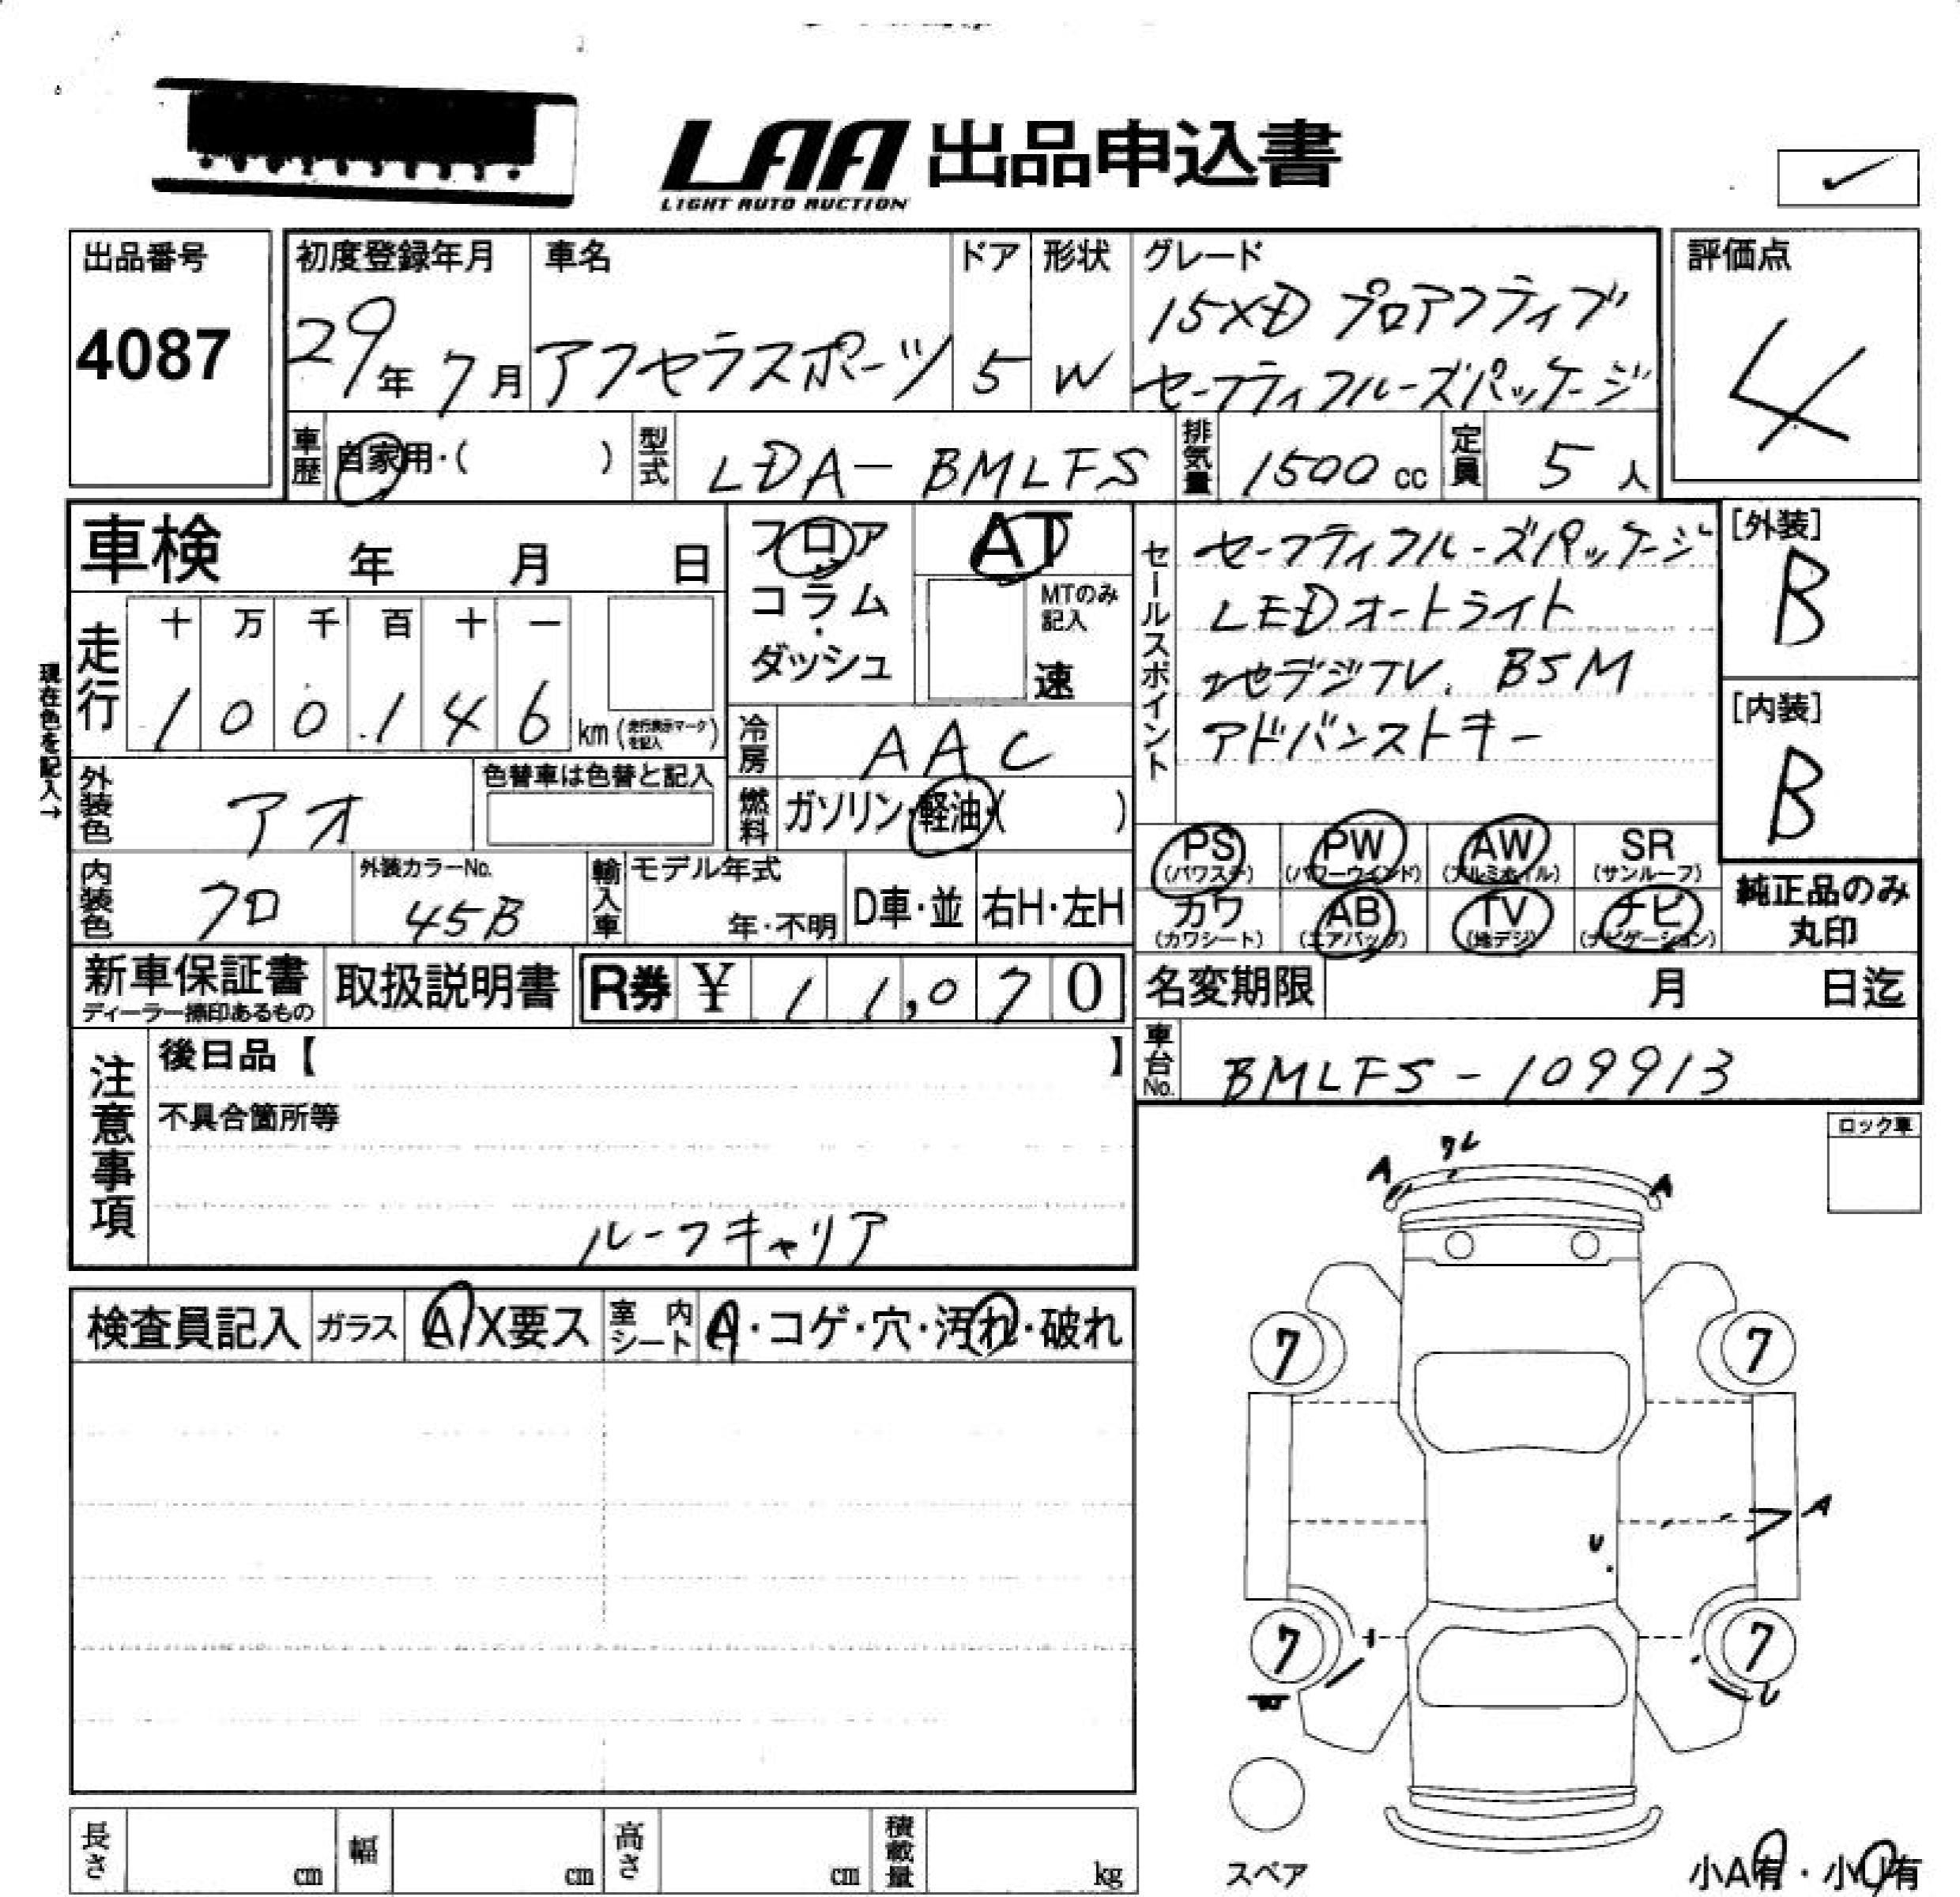 LAA 出品申込書
LIGHT AUTO AUCTION
出品番号
4087
初度登録年月
29年7月
車名
アクセラスポーツ
ドア
5
形状
W
グレード
15XD プロアクティブ
セーフティクルーズパッケージ
評価点
4
車歴
自家用・( )
型式
LDA-BMLFS
排気量
1500 cc
定員
5人
車検 年 月 日
フロア
コラム・
ダッシュ
AT
MTのみ記入
速
走行
十 万 千 百 十 一
1 0 0.1 4 6 km (走行表示マークを記入)
現在色を記入→
セールスポイント
セーフティクルーズパッケージ
LEDオートライト
地デジTV. BSM
アドバンストキー
[外装]
B
[内装]
B
冷房
AAC
燃料
ガソリン・軽油・( )
外装色
アオ
色替車は色替と記入
内装色
クロ
外装カラーNo.
45B
輸入車
モデル年式
年・不明
D車・並
右H・左H
PS
(パワステ)
PW
(パワーウインド)
AW
(アルミホイル)
SR
(サンルーフ)
カワ
(カワシート)
AB
(エアバッグ)
TV
(地デジ)
ナビ
(ナビゲーション)
純正品のみ
丸印
新車保証書
ディーラー捺印あるもの
取扱説明書
R券 ¥ 11,070
名変期限 月 日迄
車台No.
BMLFS-109913
注意事項
後日品【 】
不具合箇所等
ルーフキャリア
ロック車
検査員記入
ガラス
A/X要ス
室内シート
A・コゲ・穴・汚れ・破れ
A
クレ
A
7
7
A
U
7
7
U
スペア
小A有・小U有
長さ cm
幅 cm
高さ cm
積載量 kg